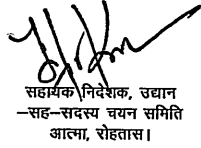 सहायक निदेशक, उद्यान
–सह–सदस्य चयन समिति
आत्मा, रोहतास।